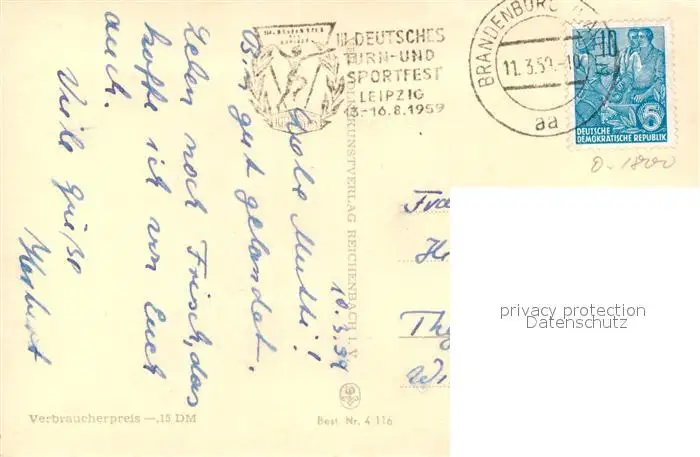 III. DEUTSCHES
TURN- UND
SPORTFEST
LEIPZIG
13.-16.8.1959
BRANDENBURG
11.3.59.-10
aa
10
6
DEUTSCHE
DEMOKRATISCHE REPUBLIK
0-1800
10.3.59
Liebe Mutti!
Bin gut gelandet.
Leben noch Frisch, das
hoffe ich von Euch
auch.
Viele Grüße
Herbert
KUNSTVERLAG REICHENBACH I. V.
Verbraucherpreis —,15 DM
Best. Nr. 4 116
privacy protection
Datenschutz